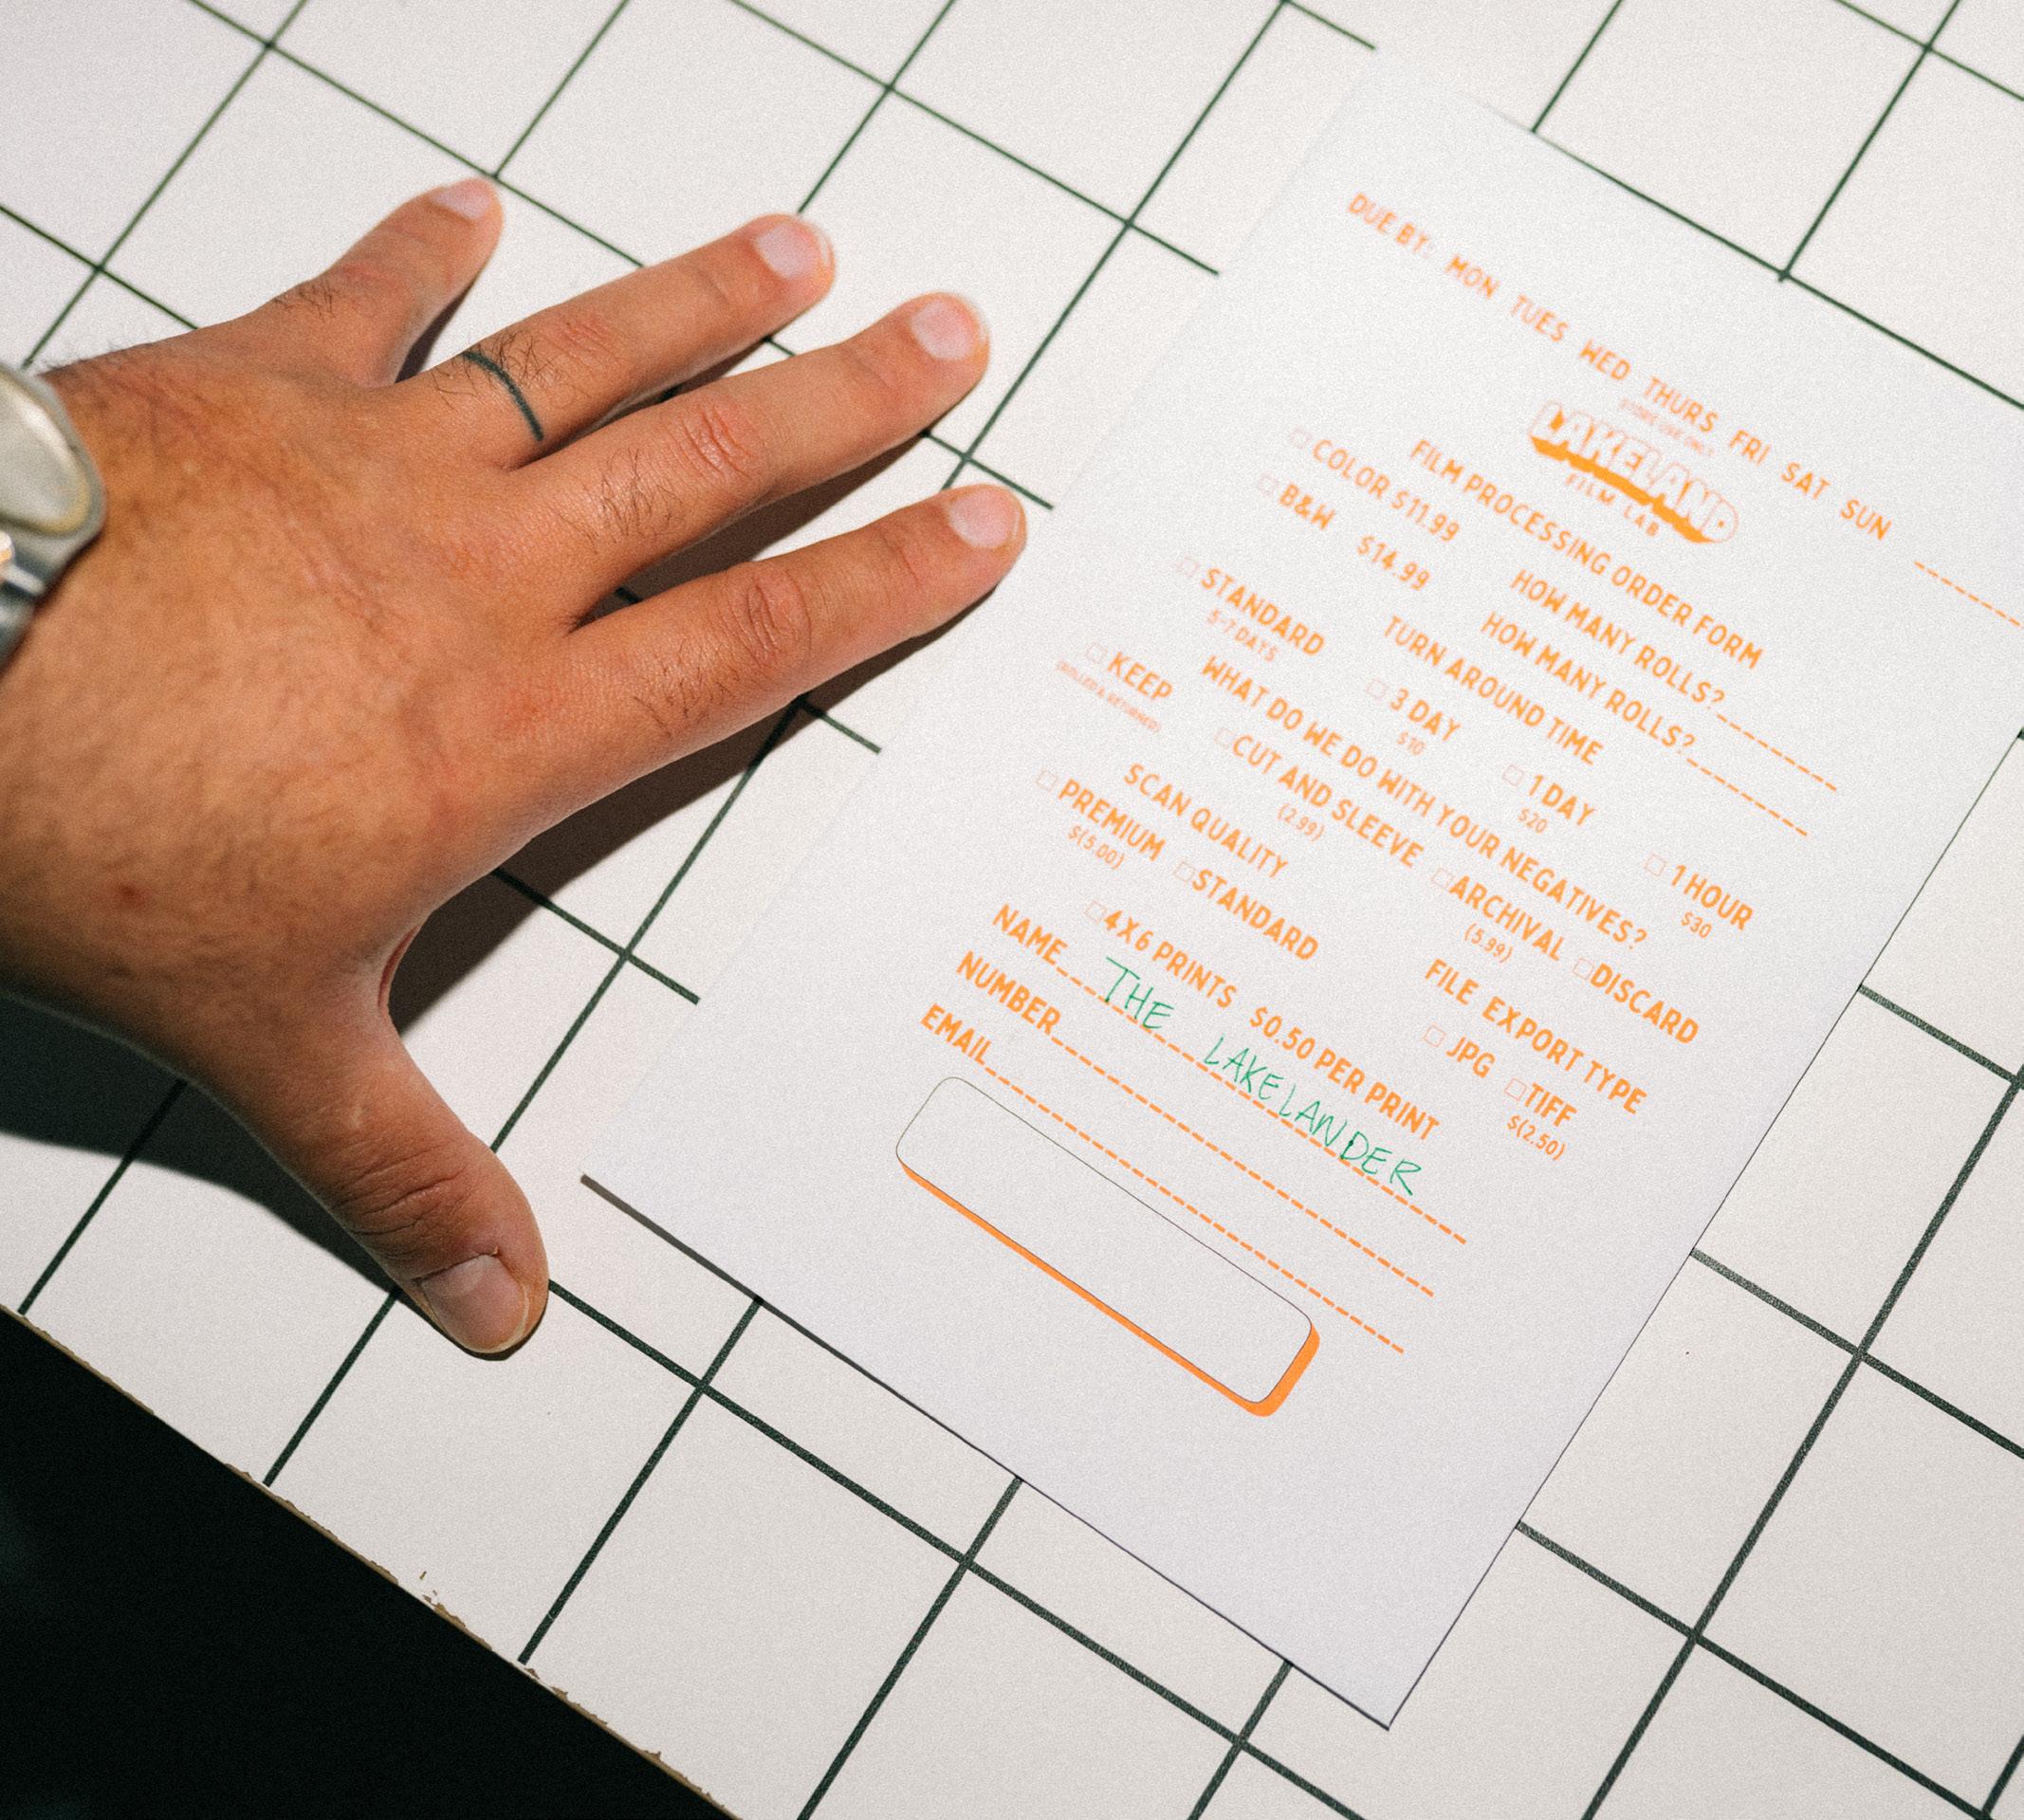 DUE BY: MON TUES WED THURS FRI SAT SUN
STORE USE ONLY
LAKELAND
FILM LAB
FILM PROCESSING ORDER FORM
COLOR $11.99 HOW MANY ROLLS?
B&W $14.99 HOW MANY ROLLS?
TURN AROUND TIME
STANDARD 3 DAY 1 DAY 1 HOUR
5-7 DAYS $10 $20 $30
WHAT DO WE DO WITH YOUR NEGATIVES?
KEEP CUT AND SLEEVE ARCHIVAL DISCARD
(ROLLED & RETURNED) (2.99) (5.99)
SCAN QUALITY FILE EXPORT TYPE
PREMIUM STANDARD JPG TIFF
$(5.00) $(2.50)
4X6 PRINTS $0.50 PER PRINT
NAME THE LAKELANDER
NUMBER
EMAIL